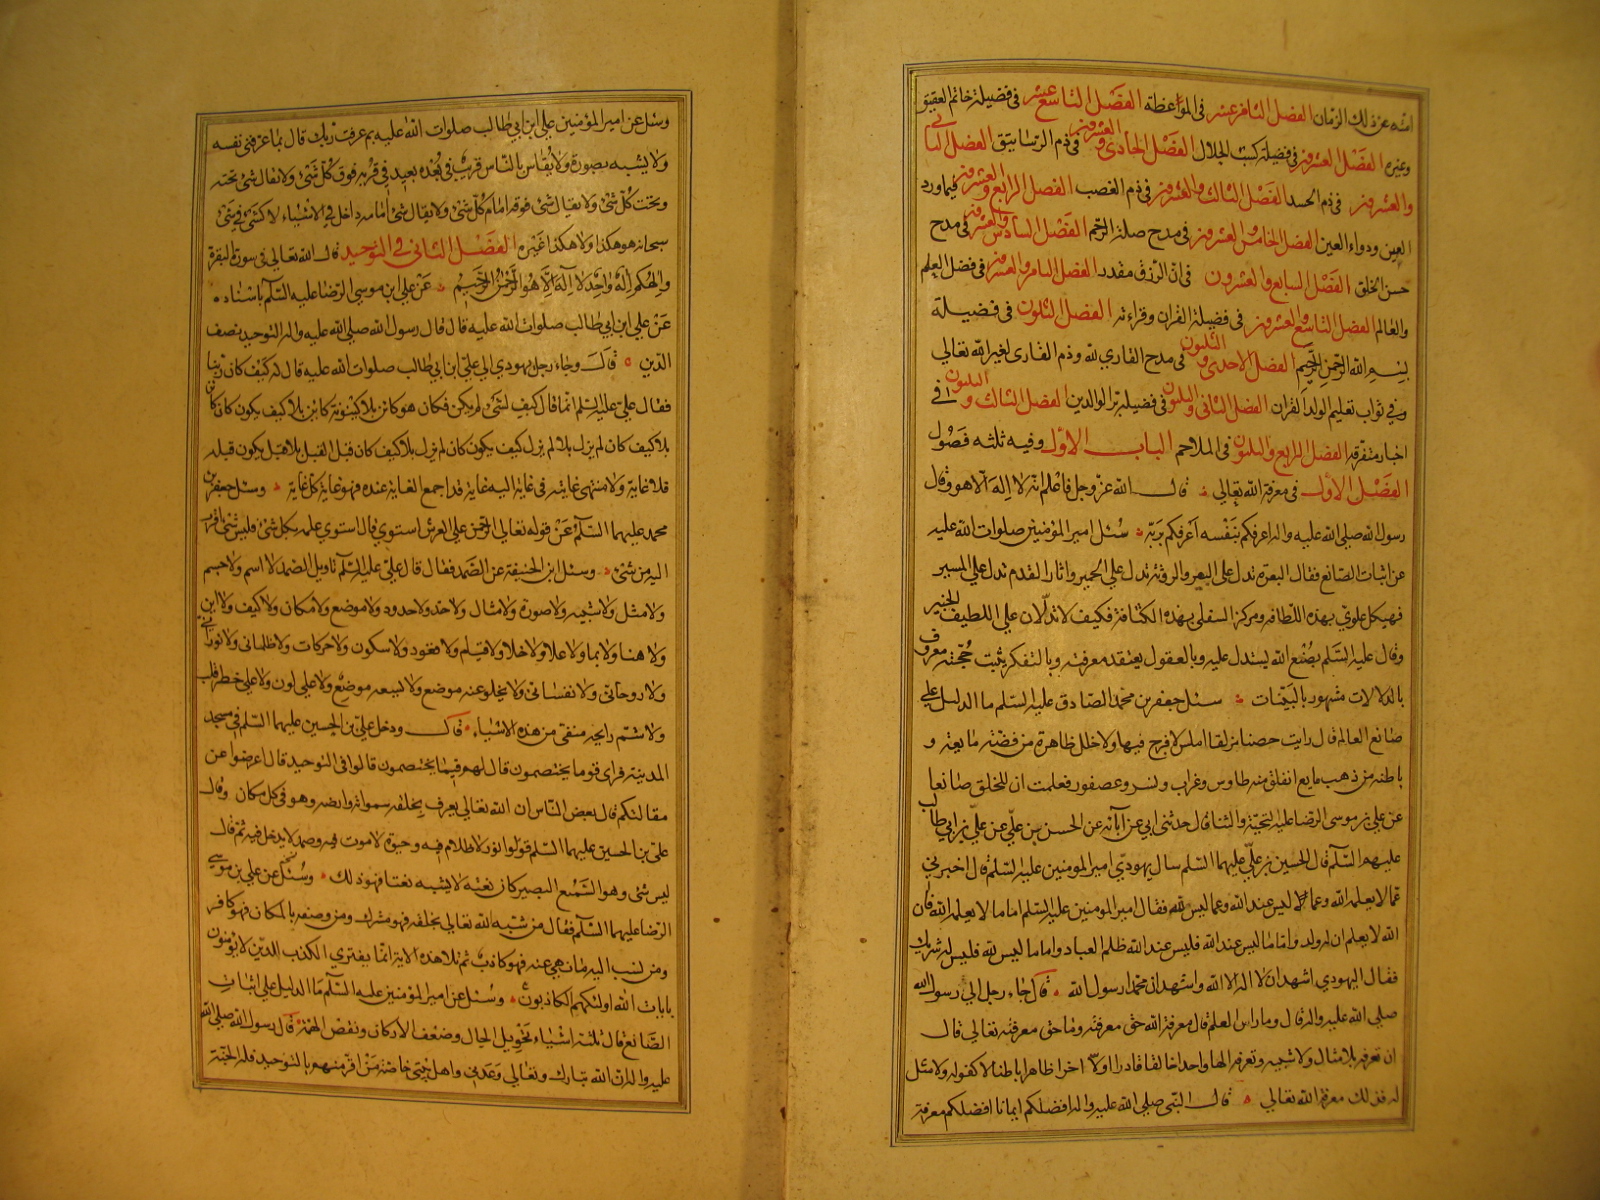 امته عزّ ذلك الزمان الفصل الثامن عشر فى المواعظة الفصل التاسع عشر فى فضيلة خاتم العقيق
وغيره الفصل العشرون فى فضيلة كسب الحلال الفصل الحادى والعشرون فى ذم الرساتيق الفصل الثانى
والعشرون فى ذم الحسد الفصل الثالث والعشرون فى ذم الغصب الفصل الرابع والعشرون فيما ورد
العين ودواء العين الفصل الخامس والعشرون فى مدح صلة الرحم الفصل السادس والعشرون فى مدح
حسن الخلق الفصل السابع والعشرون فى ان الرزق مقدر الفصل الثامن والعشرون فى فضل العلم
والعالم الفصل التاسع والعشرون فى فضيلة القران وقراءته الفصل الثلثون فى فضيلة
بسم الله الرحمن الرحيم الفصل الاحدى والثلثون فى مدح القارى لله وذم القارى لغير الله تعالي
وفي ثواب تعليم الولد القران الفصل الثانى والثلثون فى فضيلة بر الوالدين الفصل الثالث والثلثون فى
اخبار متفرقه الفصل الرابع والثلثون فى الملاحم الباب الاول وفيه ثلثه فصول
الفصل الاول فى معرفة الله تعالي قال الله عز وجل فاعلم انه لا اله الا هو وقال
رسول الله صلى الله عليه واله اعرفكم بنفسه اعرفكم بربه سئل امير المؤمنين صلوات الله عليه
عن اثبات الصانع فقال البعرة تدل على البعير والروثة تدل علي الحمير واثار القدم تدل علي المسير
فهيكل علوي بهذه اللطافه ومركز السفلى بهذه الكثافة فكيف لا تدلان علي اللطيف الخبير
وقال عليه السلم بصنع الله يستدل عليه وبالعقول يعتقد معرفته وبالتفكر يثبت حجته معروف
بالدلالات مشهور بالبينات سئل جعفر بن محمد الصادق عليه السلم ما الدليل علي
صانع العالم قال رايت حصنا مزلقا املس لا فرج فيها ولا خلل ظاهره من فضة مايعة و
باطنه من ذهب مايع انفلق منه طاوس وغراب ونسر وعصفور فعلمت ان للخلق صانعا
عن علي بن موسى الرضا عليه التحية والثنا قال حدثنى ابي عن آبائه عن الحسن بن علي عن علي بن ابي طالب
عليهم السلم قال الحسين بن علي عليهما السلم سال يهودي امير المومنين عليه السلم قال اخبرني
عما لا يعلمه الله وعما لا ليس عند الله وعما ليس لله فقال امير المومنين عليه السلم اما ما لا يعلمه الله فان
الله لا يعلم ان له ولد واما ما ليس عند الله فليس عند الله ظلم العباد واما ما ليس لله فليس له شريك
فقال اليهودي اشهد ان لا اله الا الله واشهد ان محمدا رسول الله قال جاء رجل الي رسول الله
صلى الله عليه واله قال وما راس العلم قال معرفة الله حق معرفته وما حق معرفته تعالي قال
ان تعرفه بلا مثال ولا شبيه وتعرفه الها واحدا خالقا قادرا اولا اخرا ظاهرا باطنا لا كفو له ولا مثل
له فذلك معرفة الله تعالي قال النبى صلي الله عليه واله افضلكم ايمانا افضلكم معرفة
وسئل عن امير المؤمنين على ابن ابي طالب صلوات الله عليه بم عرفت ربك قال بما عرفنى نفسه
ولا يشبه بصورة ولا يقاس بالناس قريب فى بعده بعيد في قربه فوق كل شئ ولا يقال شئ تحته
وتحت كل شئ ولا يقال شئ فوقه امام كل شئ ولا يقال شئ امامه داخل في الاشياء لا كشئ فى شئ
سبحانه هو هكذا ولا هكذا غيره الفصل الثانى فى التوحيد قال الله تعالي فى سورة البقرة
والهكم اله واحد لا اله الا هو الرحمن الرحيم عن علي ابن موسى الرضا عليه السلم باسناده
عن علي ابن ابي طالب صلوات الله عليه قال قال رسول الله صلى الله عليه واله التوحيد نصف
الدين قال وجاء رجل يهودي الي علي ابن ابي طالب صلوات الله عليه قال له كيف كان ربنا
فقال علي عليه السلم انما قال كيف لشئ لم يكن فكان هو كائن بلا كينونة كاين بلا كيف يكون كان كائن
بلا كيف كان لم يزل بلا لم يزل كيف يكون كان لم يزل بلا كيف كان قبل القبل بلا قبل يكون قبله
فلا غاية ولا منتهى غايته فى غاية اليه غاية قد اجمع الغاية عنده فهو غاية كل غاية وسئل جعفر بن
محمد عليهما السلم عن قوله تعالي الرحمن علي العرش استوي قال استوي علمه بكل شئ فليس شئ اقرب
اليه من شئ وسئل ابن الحنيفة عن الصمد فقال قال علي عليه السلم تاويل الصمد لا اسم ولا جسم
ولا مثل ولا شبيه ولا صورة ولا مثال ولا حد ولا حدود ولا موضع ولا مكان ولا كيف ولا اين
ولا هنا ولا بما ولا علا ولا خلا ولا قيام ولا قعود ولا سكون ولا حركات ولا ظلمانى ولا نورانى
ولا روحانى ولا نفسانى ولا يخلو عنه موضع ولا يسعه موضع ولا على لون ولا علي خطر قلب
ولا شم رايحه منفى من هذه الاشياء قال ودخل علي بن الحسين عليهما السلم فى مسجد
المدينة فراى قوما يختصمون قال لهم فيما يختصمون قالوا فى التوحيد قال اعرضوا عن
مقالتكم قال بعض الناس ان الله تعالي يعرف بخلقه سمواته وارضه وهو فى كل مكان وقال
علي بن الحسين عليهما السلم قولوا نور لا ظلام فيه وحيوة لا موت فيه وصمد لا يدخل فيه ثم قال
ليس شئ وهو السميع البصير كان نعته لا يشبه نعتا فهو ذلك وسئل عن علي بن موسى
الرضا عليهما السلم فقال من شبه الله تعالي بخلقه فهو مشرك ومن وصفه بالمكان فهو كافر
ومن نسب اليه ما نهي عنه فهو كاذب ثم تلا هذه الاية انما يفتري الكذب الذين لا يؤمنون
بايات الله اولئك هم الكاذبون وسئل عن امير المؤمنين عليه السلم ما الدليل علي اثبات
الصانع قال ثلثة اشياء تحويل الحال وضعف الاركان ونقض الهمة قال رسول الله صلى الله
عليه واله ان الله تبارك وتعالي وعدنى واهل بيتى خاصة من اقر منهم بالتوحيد فله الجنة